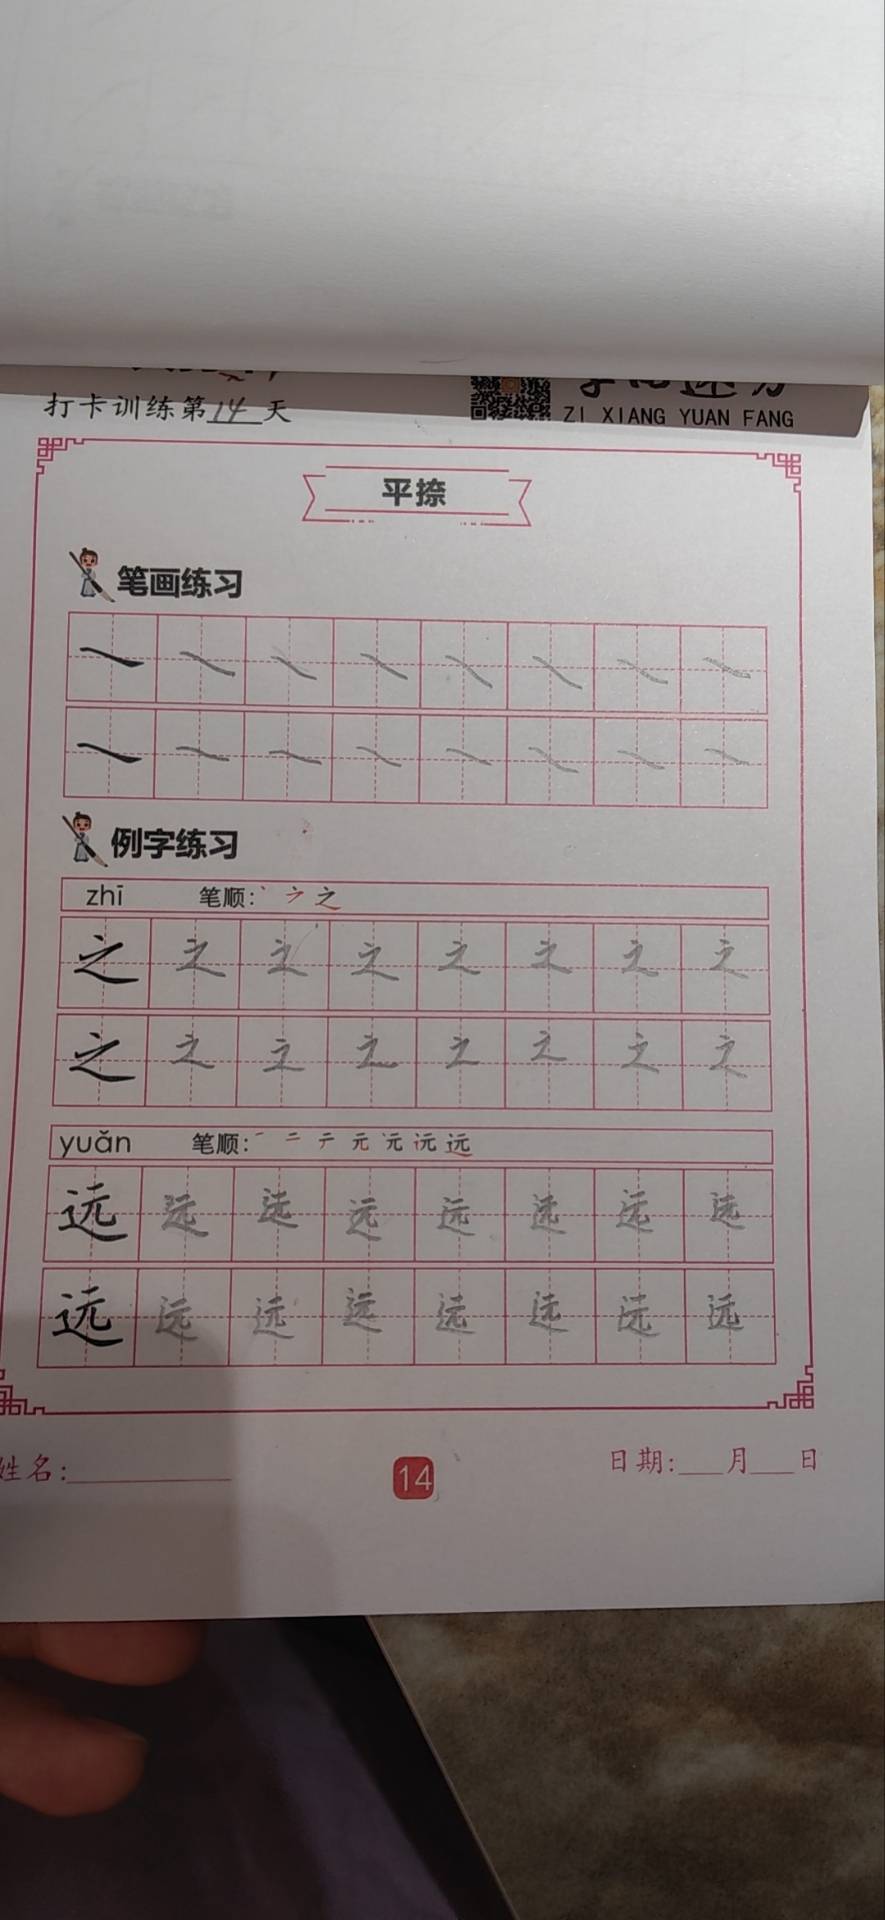 打卡训练第14天
ZI XIANG YUAN FANG
平捺
笔画练习
例字练习
zhī 笔顺: 丶 ㇇ 之
之 之 之 之 之 之 之 之
之 之 之 之 之 之 之 之
yuǎn 笔顺: 一 二 テ 元 沅 远
远 远 远 远 远 远 远 远
远 远 远 远 远 远 远 远
姓名:
14
日期: 月 日